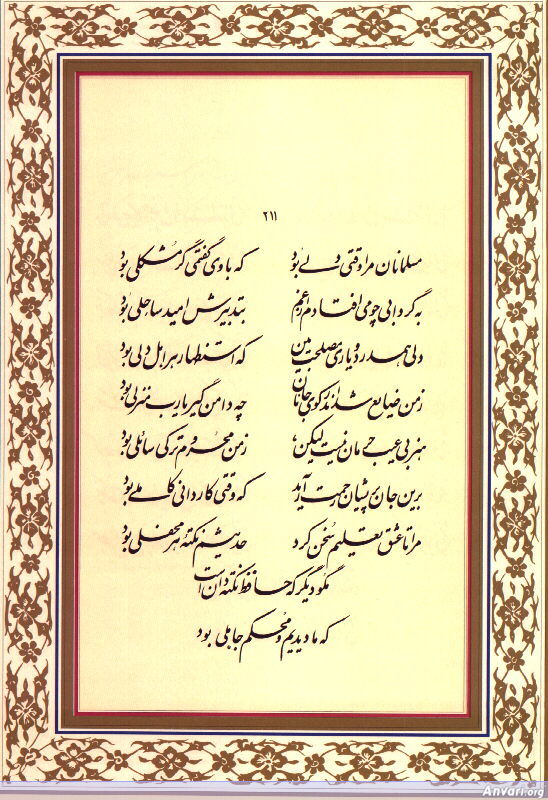 ۲۱۱
مسلمانان مرا وقتی دلی بود که با وی گفتمی گر مشکلی بود
به گردابی چو می‌افتادم از غم بتدبیرش امید ساحلی بود
دلی همدرد و یاری مصلحت بین که استظهار هر اهل دلی بود
زمن ضایع شد اندر کوی جانان چه دامن گیر یارب منزلی بود
هنر بی عیب حرمان نیست لیکن زمن محروم‌تر کی سائلی بود
برین جان پریشان رحمت آرید که وقتی کاردانی کاملی بود
مرا تا عشق تعلیم سخن کرد حدیثم نکتهٔ هر محفلی بود
مگو دیگر که حافظ نکته دان است
که ما دیدیم و محکم جاهلی بود
Anvari.org